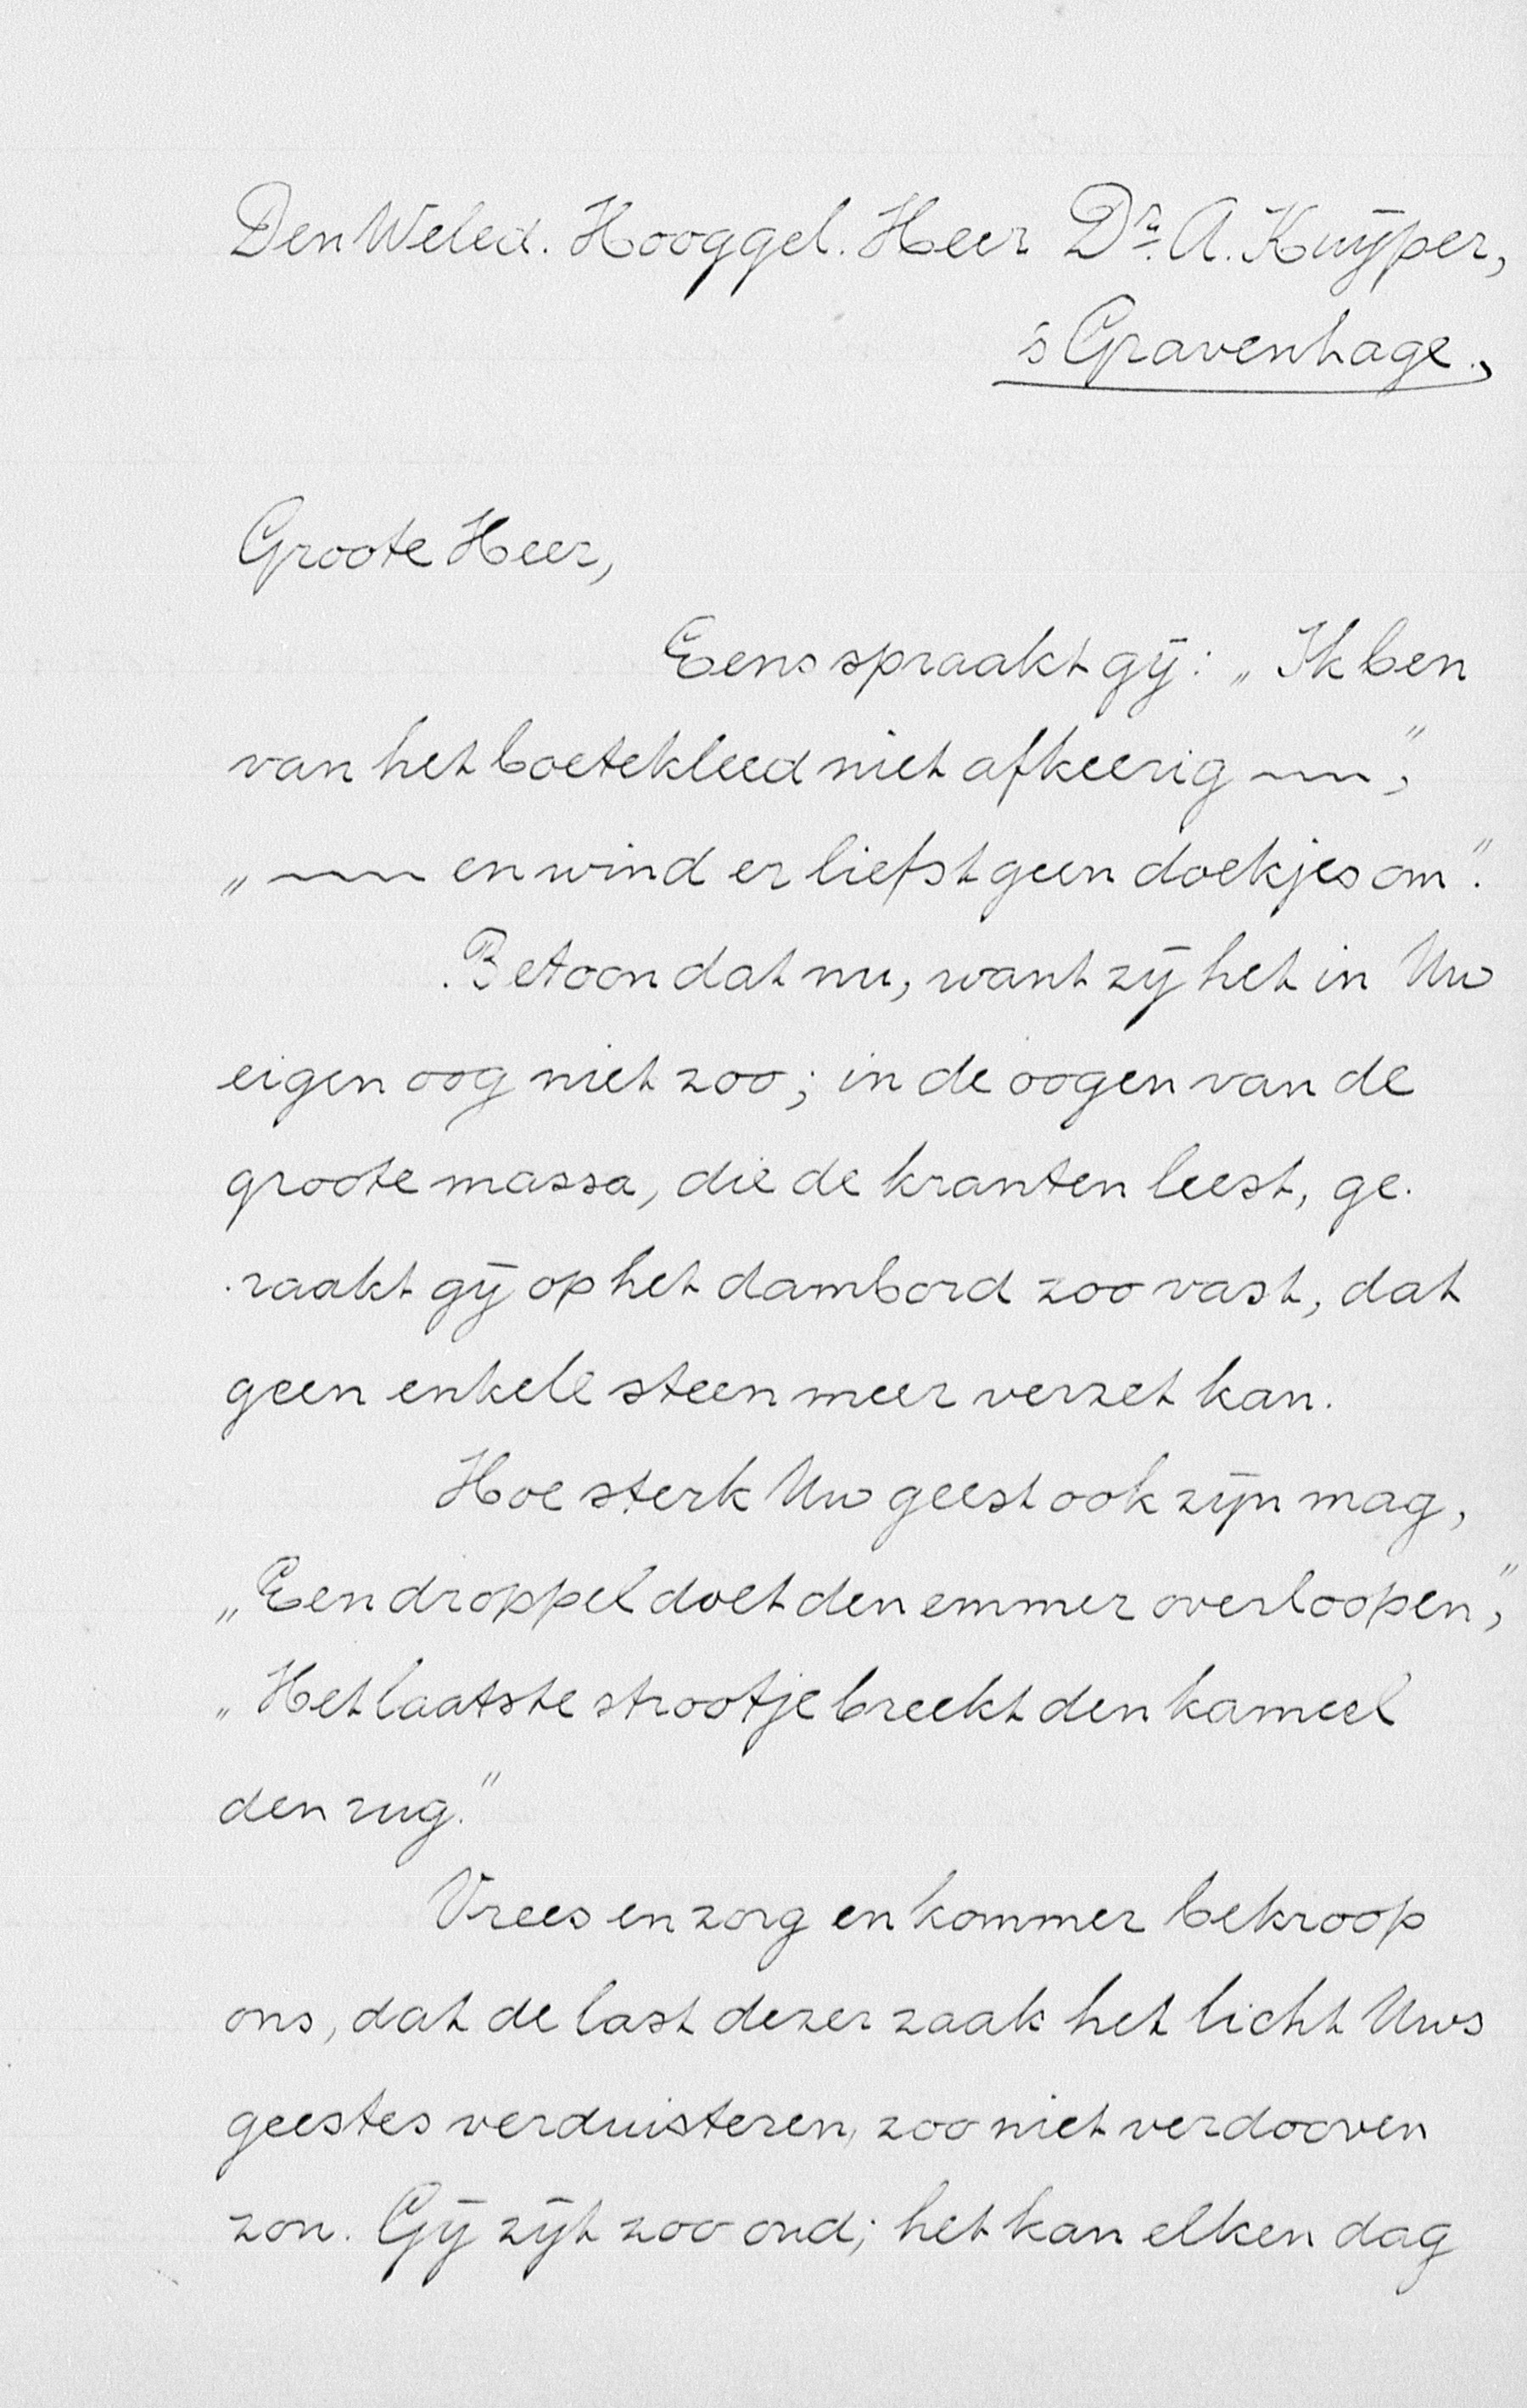 Den Weled. Hooggel. Heer Dr. A. Kuÿper,
's Gravenhage.,
Groote Heer,
Eens spraakt gÿ: „Ik ben
van het boetekleed niet afkeerig ~~~",
„~~~ en wind er liefst geen doekjes om".
Betoon dat nu, want zÿ het in Uw
eigen oog niet zoo; in de oogen van de
groote massa, die de kranten leest, ge-
raakt gÿ op het dambord zoo vast, dat
geen enkele steen meer verzet kan.
Hoe sterk Uw geest ook zÿn mag,
„Een droppel doet den emmer overloopen",
„Het laatste strootje breekt den kameel
den rug."
Vrees en zorg en kommer bekroop
ons, dat de last dezer zaak het licht Uws
geestes verduisteren, zoo niet verdooven
zou. Gÿ zÿt zoo oud; het kan elken dag